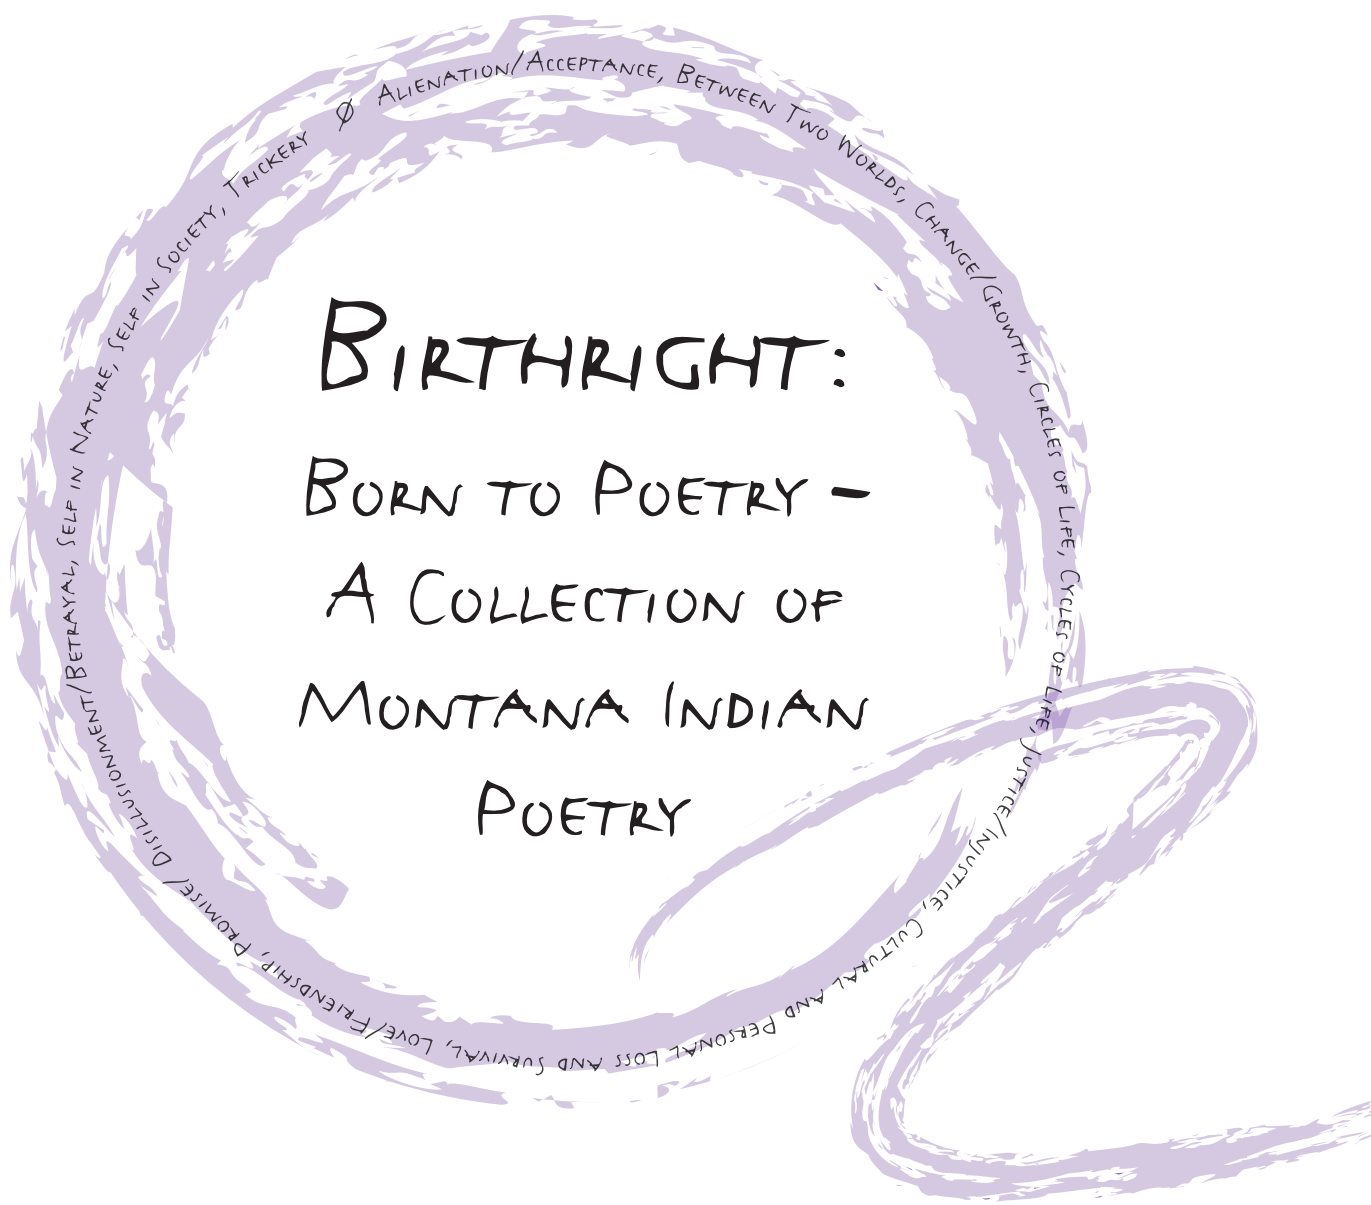 Birthright:
Born to Poetry –
A Collection of
Montana Indian
Poetry
Ø Alienation/Acceptance, Between Two Worlds, Change/Growth, Circles of Life, Cycles of Life, Justice/Injustice, Cultural and Personal Loss and Survival, Love/Friendship, Promise/ Disillusionment/Betrayal, Self in Nature, Self in Society, Trickery